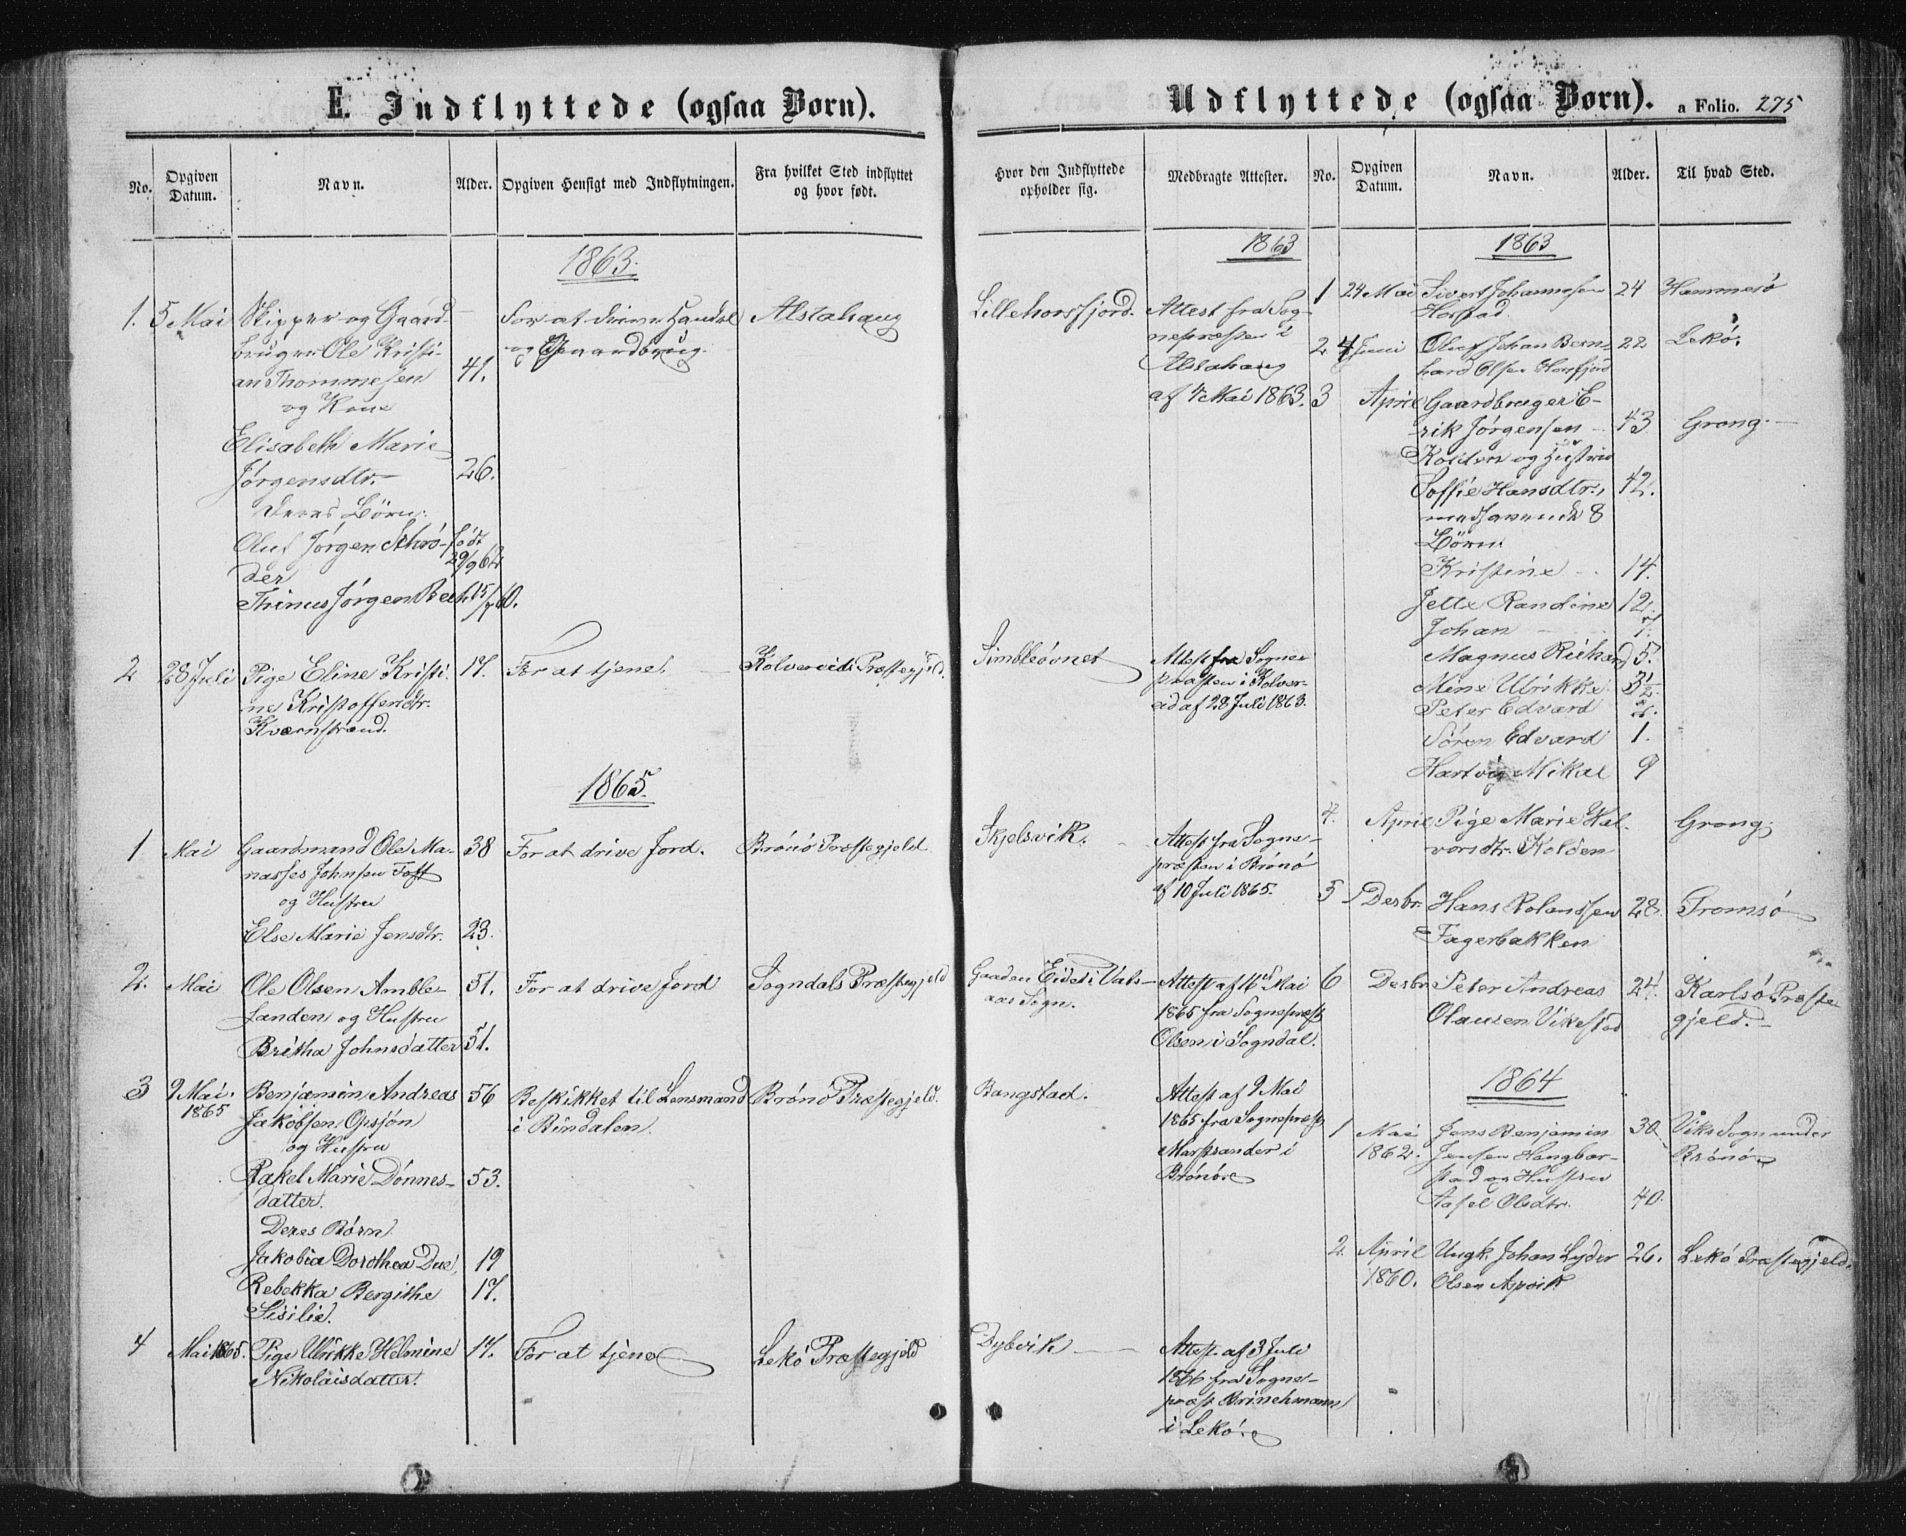 E. Indflyttede (ogsaa Børn).
No.
Opgiven Datum.
Navn.
Alder.
Opgiven Hensigt med Indflytningen.
Fra hvilket Sted indflyttet og hvor født.
1863.
1. 5 Mai Skipper og Gaard-
bruger Ole Kristi-
an Thommesen 41.
og Kone
Elisabeth Marie
Jørgensdtr. 26.
Deres Børn:
Oluf Jørgen Schrø- født
der 29/9 62
Thinus Jørgen
For at drive Handel
og Gaardbrug.
Alstahaug
2 28 Juli Pige Eline Kristi- 17. For at tjene.
ne Kristoffersdtr.
Kværnstrand.
Præstegjeld.
1865.
1 Mai Gaardmand Ole Ma- 38 For at drive Jord. Brønø Præstegjeld
nasses Johnsen Toft
og Hustru
Else Marie Jensdtr. 23.
2. Mai Ole Olsen Amble- 51. For at drive Jord Sogndals Præstegjeld
Landen og Hustru
Britha Johnsdatter 51.
3 9 Mai Benjamin Andreas 56 Beskikket til Lensmand Brønø Præstegjeld.
1865 Jakobsen Opsjøn i Bindalen.
og Hustru
Rakel Marie Dønnes- 53.
datter.
Deres Børn
Jakobia Dorothea Due, 19
Rebekka Bergithe 17.
Sisilie.
4 Mai 1865. Pige Ulrikke Helmine 17. For at tjene Lekø Præstegjeld
Nikolaisdatter.
Udflyttede (ogsaa Børn).
a Folio. 275
Hvor den Indflyttede opholder sig.
Medbragte Attester.
No.
Opgiven Datum.
Navn.
Alder.
Til hvad Sted.
1863
Lillehorsfjord. Attest fra Sog-
nepræsten i
Alstahaug
af 4 Mai 1863.
Simblesøvnet Attest fra Sogne
præsten i Kolver-
eid af 28 Juli 1863.
Skjelsvik. Attest fra Sogne-
præsten i Brønø
af 10 Juli 1865.
Gaarden Eidet i Vats- Attest af 16 Mai
aas Sogn. 1865 fra Sognepræst
Olsen i Sogndal.
Bangstad. Attest af 9 Mai
1865 fra Sognepræst
Marstrander i
Brønø
Dybvik Attest af 3 Juli
1866 fra Sogne-
præst Brinchmann
i Lekø.
1863
1 24 Mai Sivert Johannesen 24 Hammerø
Horstad
2 4 Juni Oluf Johan Bern- 22 Lekø.
hard Olsen Horsfjord
3 April Gaardbruger E-
rik Jørgensen 43 Grong.
Kolden og Hustru
Soffie Hansdtr., 42.
medhavende 8
Børn:
Kristine 14.
Jette Randine 12.
Johan
Magnus Rikhard 5.
Mine Ulrikke 3½
Peter Edvard
Søren Edvard 1.
Hartvig Mikal 9
4. April Pige Marie Hal- Grong.
vorsdtr. Kolden
5 Desbr. Hans Rolandsen 28. Tromsø
Fagerbakken
6 Desbr. Peter Andreas 24. Karlsø Præste
Olausen Vikestad gjeld.
1864
1 Mai Jens Benjamin 30 Viks Sogn under
1862. Jensen Hangbar- Brønø
stad og Hustru
Olsdtr. 40.
2 April Ungk. Johan Lyder 26. Lekø Præstegjeld.
1860. Olsen Aspvik